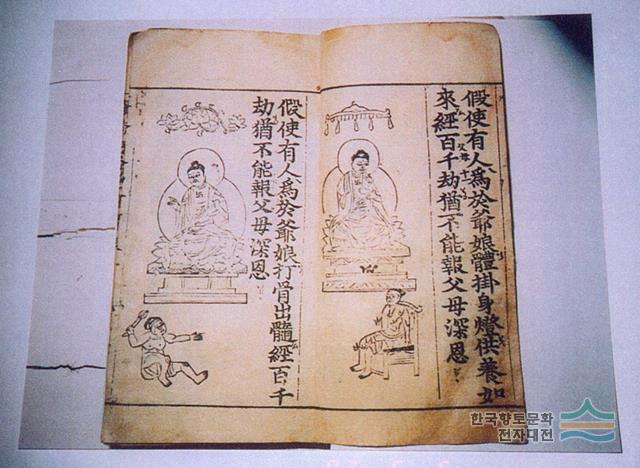 假使有人爲於爺娘體掛身燈供養如
來經百千劫猶不能報父母深恩
假使有人爲於爺娘打骨出髓經百千
劫猶不能報父母深恩
한국향토문화
전자대전